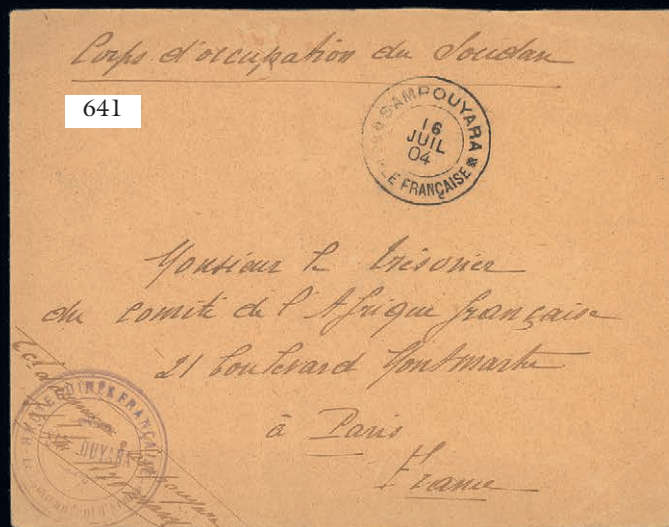 Corps d'occupation du Soudan
641
SAMPOUYARA
16
JUIL
04
E FRANÇAISE
Monsieur le trésorier
du comité de l'Afrique française
21 boulevard Montmartre
à Paris
France
GUINÉE FRANÇAISE
OUYARA